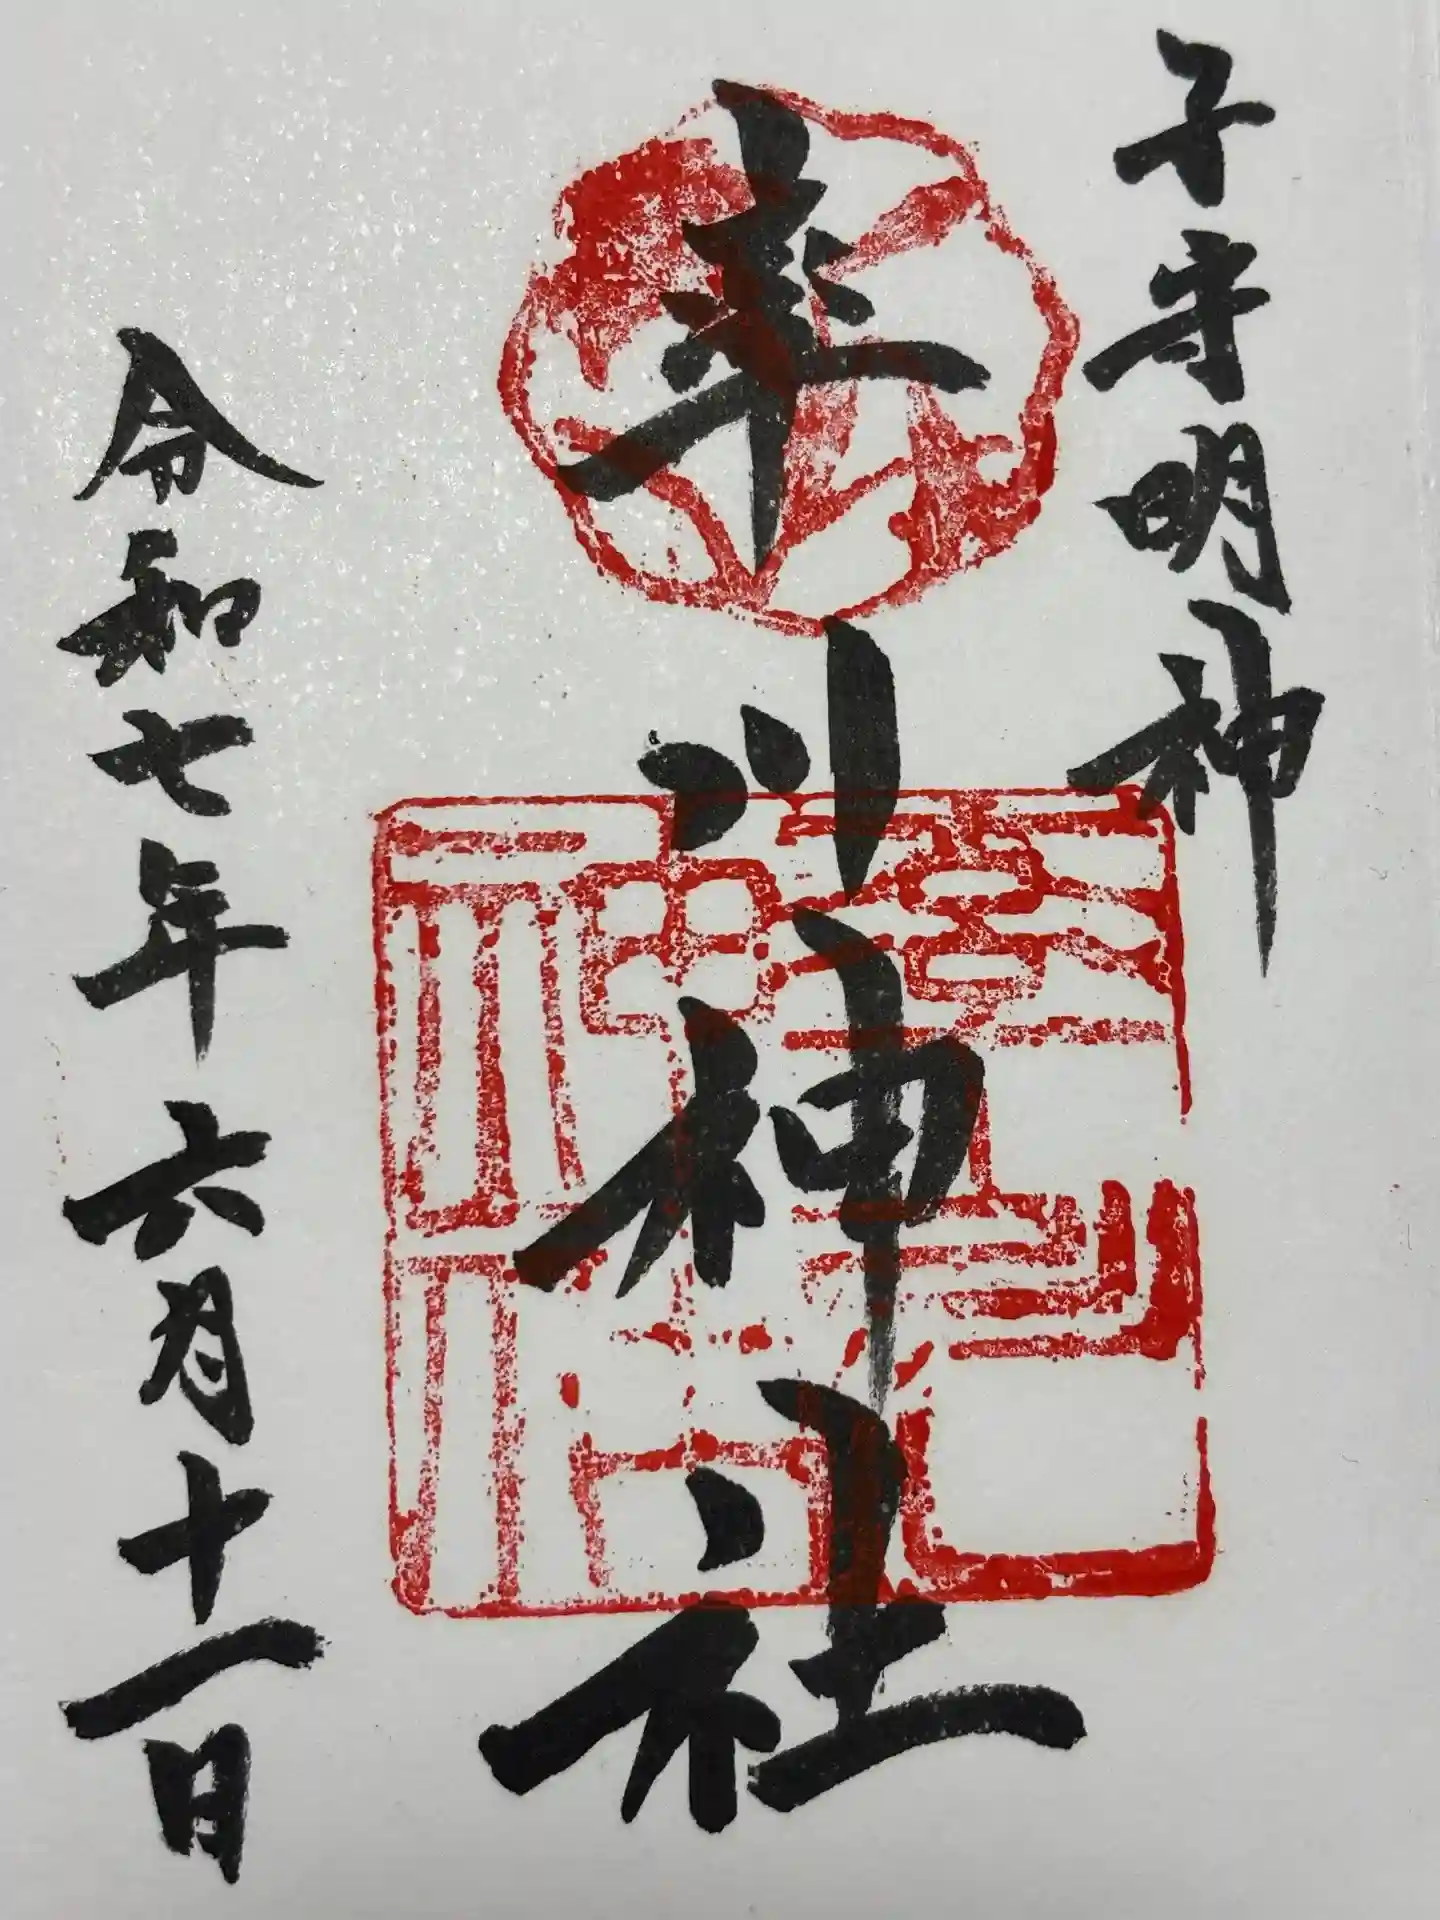 子守明神
率川神社
令和七年六月十一日